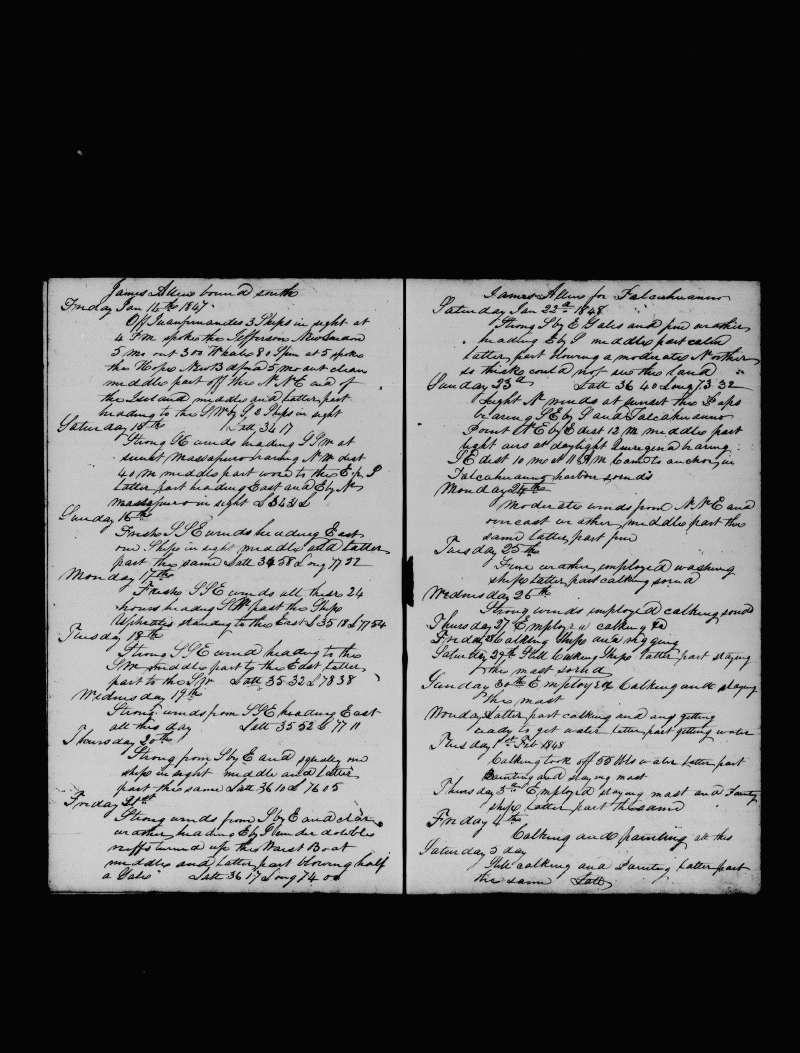 James Allen bound south
Friday Jan 14th 1847
Off Juanfirnandes 3 Ships in sight at
4 P.M. spoke the Jefferson New London
5 mo out 300 Whale 80 Spm at 5 spoke
the Hope New B 5 mo out clean
middle part off the N N E end of
the Island middle and latter part
heading to the SW by S 2 Ships in sight
Saturday 15th Latt 34 17
Strong SE winds heading S S W at
sunset Massafuro bearing N W dist
40 M middle part wore to the E by S
latter part heading East and E by N
Massafuro in sight L 34 31 L
Sunday 16th
Fresh S S E winds heading East
one Ship in sight middle and latter
part the same Latt 34 58 Long 77 52
Monday 17th
Fresh S S E winds all these 24
hours heading SW past the Ship
standing to the East L 35 18 L 77 54
Tuesday 18th
Strong S S E wind heading to the
SW middle part to the East latter
part to the SW Latt 35 32 L 78 38
Wednesday 19th
Strong winds from S S E heading East
all this day Latt 35 52 L 77 11
Thursday 20th
Strong from S by E and squally one
ship in sight middle and latter
part the same Latt 36 10 L 76 05
Friday 21st
Strong winds from S by E and clear
weather heading E by S under double
reeffs turned up the Waist Boat
middle and latter part blowing half
a Gale Latt 36 17 Long 74 00
James Allen for Talcahuanno
Saturday Jan 22d 1848
Strong S by E Gales and fine weather
heading E by S middle part calm
latter part blowing a moderate Norther
so thick could not see the land
Sunday 23d Latt 36 40 Long 73 32
Light N winds at sunset the Paps
bearing S E by S and Talcahuanno
Point N E by E dist 12 M middle part
light airs at daylight bearing
S E dist 10 mo at 11 A M came to anchor in
Talcahuanno harbour so ends
Monday 24th
Moderate winds from N N E and
overcast weather middle part the
same latter part fine
Tuesday 25th
Fine weather employed washing
ship latter part calking so end
Wednesday 26th
Strong winds employed calking so end
Thursday 27 Employed calking &c
Friday 28 Calking Ship and rigging
Saturday 29th Still Calking Ship latter part staying
the mast so end
Sunday 30th Employed Calking and staying
the mast
Monday latter part calking and getting
ready to get water latter part getting water
Tuesday 1st Feb 1848
Calking took off 55 bbls water latter part
Painting and staying mast
Thursday 3rd Employed staying mast and Painting
ship latter part the same
Friday 4th
Calking and painting all this
Saturday 5 day
Still calking and Painting latter part
the same Latt